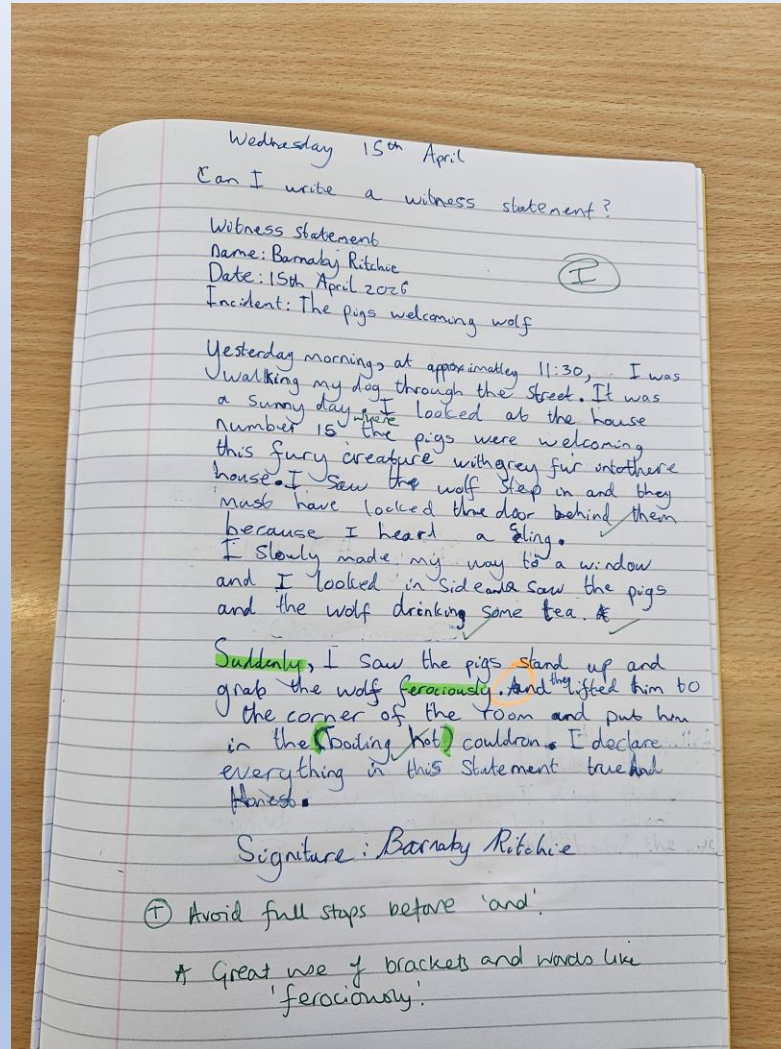 Wednesday 15th April
Can I write a witness statement?
Witness statement
Name: Barnaby Ritchie
Date: 15th April 2026
I
Incident: The pigs welcoming wolf
Yesterday morning, at approximatley 11:30, I was
walking my dog through the street. It was
a sunny day. I looked at the house
number 15 where the pigs were welcoming
this fury creature with grey fur into there
house. I saw the wolf step in and they
must have locked the door behind them
because I heard a
I slowly made my way to a window
and I looked in side and saw the pigs
and the wolf drinking some tea.
Suddenly, I saw the pigs stand up and
grab the wolf ferociously. And they lifted him to
the corner of the room and put him
in the (boiling hot) couldron. I declare
everything in this statement true and
Honest.
Signiture: Barnaby Ritchie
T Avoid full stops before 'and'.
Great use of brackets and words like
'ferociously'.